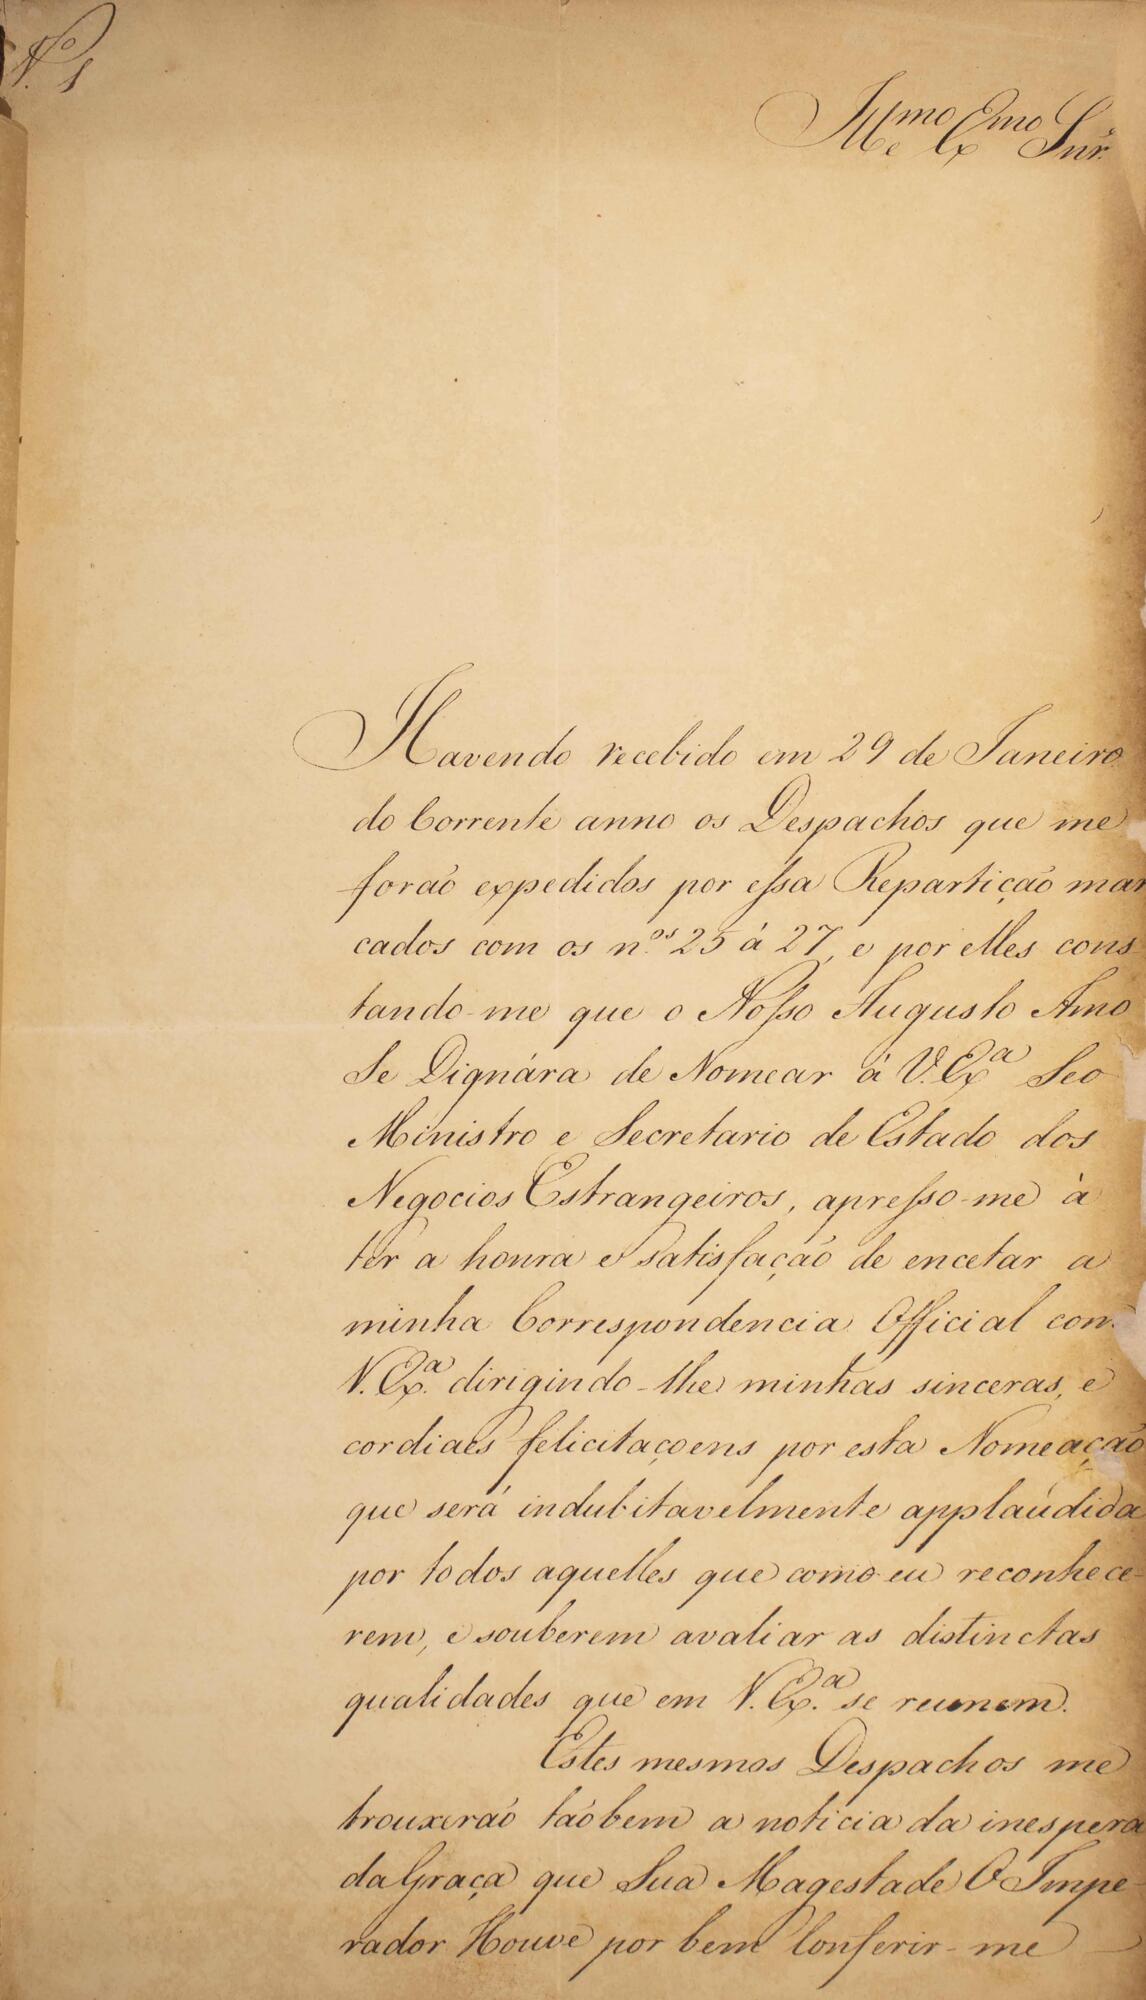 N.º 1
Ill.mo e Ex.mo Snr.
Havendo recebido em 29 de Janeiro
do Corrente anno os Despachos que me
forão expedidos por essa Repartição mar
cados com os n.os 25 á 27, e por elles cons-
tando-me que o Nosso Augusto Amo
Se Dignára de Nomear á V. Ex.a Seo
Ministro e Secretario de Estado dos
Negocios Estrangeiros, apresso-me á
ter a honra e satisfação de encetar a
minha Correspondencia Official com
V. Ex.a dirigindo-lhe minhas sinceras, e
cordiaes felicitaçoens por esta Nomeação
que será indubitavelmente applaúdida
por todos aquelles que como eu reconhece-
rem, e souberem avaliar as distinctas
qualidades que em V. Ex.a se reunem.
Estes mesmos Despachos me
trouxerão tãobem a noticia da inespera
da Graça que Sua Magestade O Impe-
rador Houve por bem Conferir-me